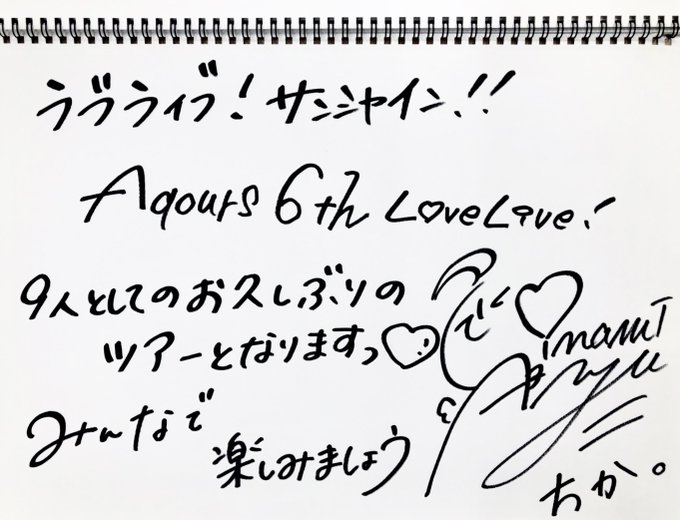 ラブライブ！サンシャイン!!
Aqours 6th LoveLive!
9人としてのお久しぶりの
ツアーとなりますっ♡
みんなで
楽しみましょう
inami
Anju
ちか。